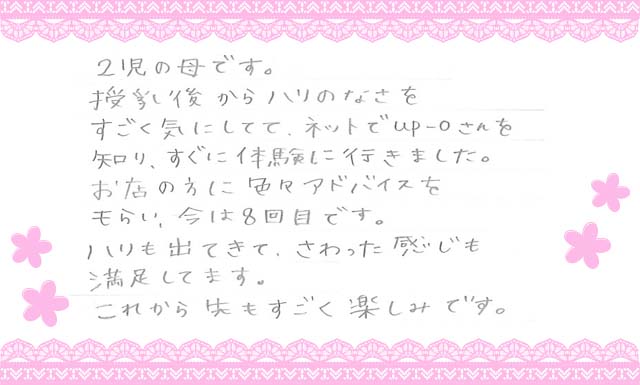 2児の母です。
授乳後からハリのなさを
すごく気にしてて、ネットでup-oさんを
知り、すぐに体験に行きました。
お店の方に色々アドバイスを
もらい、今は8回目です。
ハリも出てきて、さわった感じも
満足してます。
これから先もすごく楽しみです。